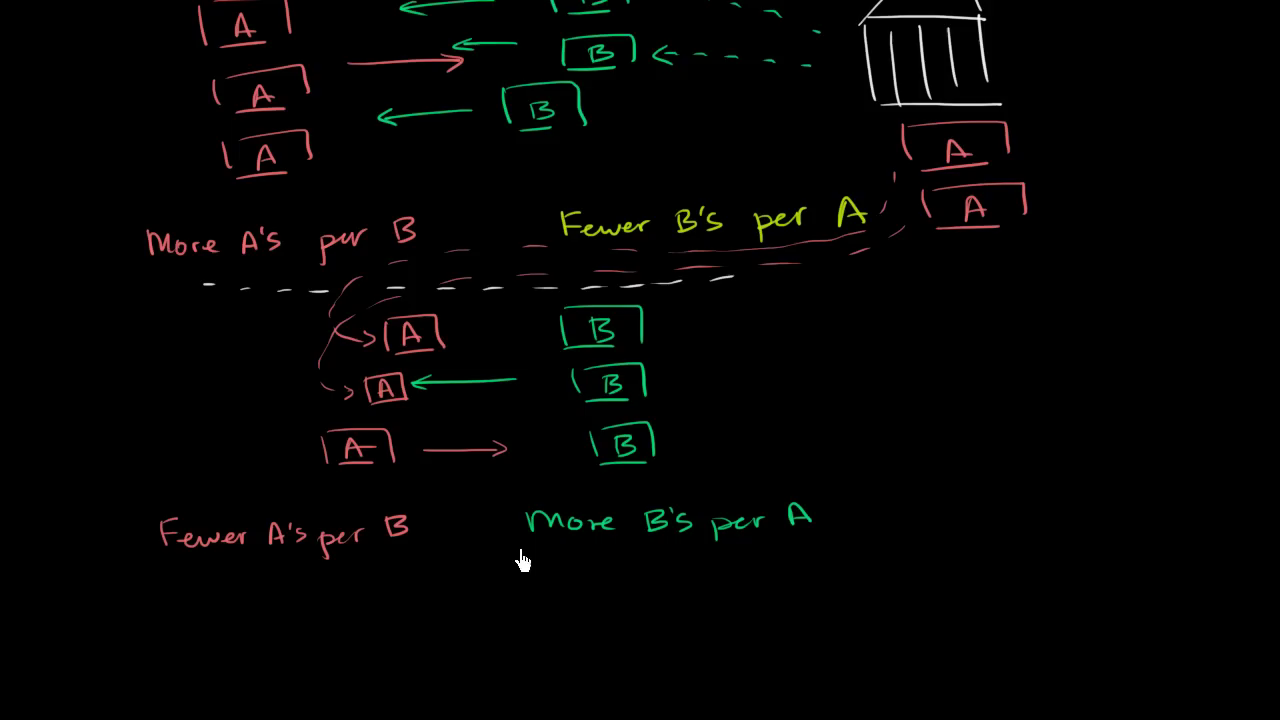 A
B
A
B
A
A
A
A
More A's per B
Fewer B's per A
A
B
A
B
A
B
Fewer A's per B
More B's per A